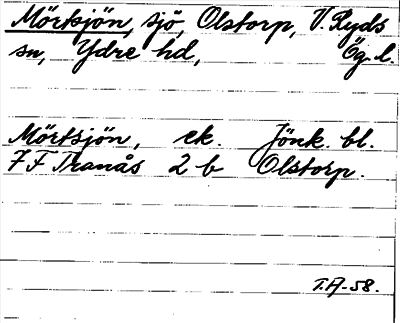 Mörtsjön, sjö, Olstorp, V. Ryds
sn, Ydre hd, Ög. l.
Mörtsjön, ek. Jönk. bl.
7 F Tranås 2 b Olstorp.
T.A-58.